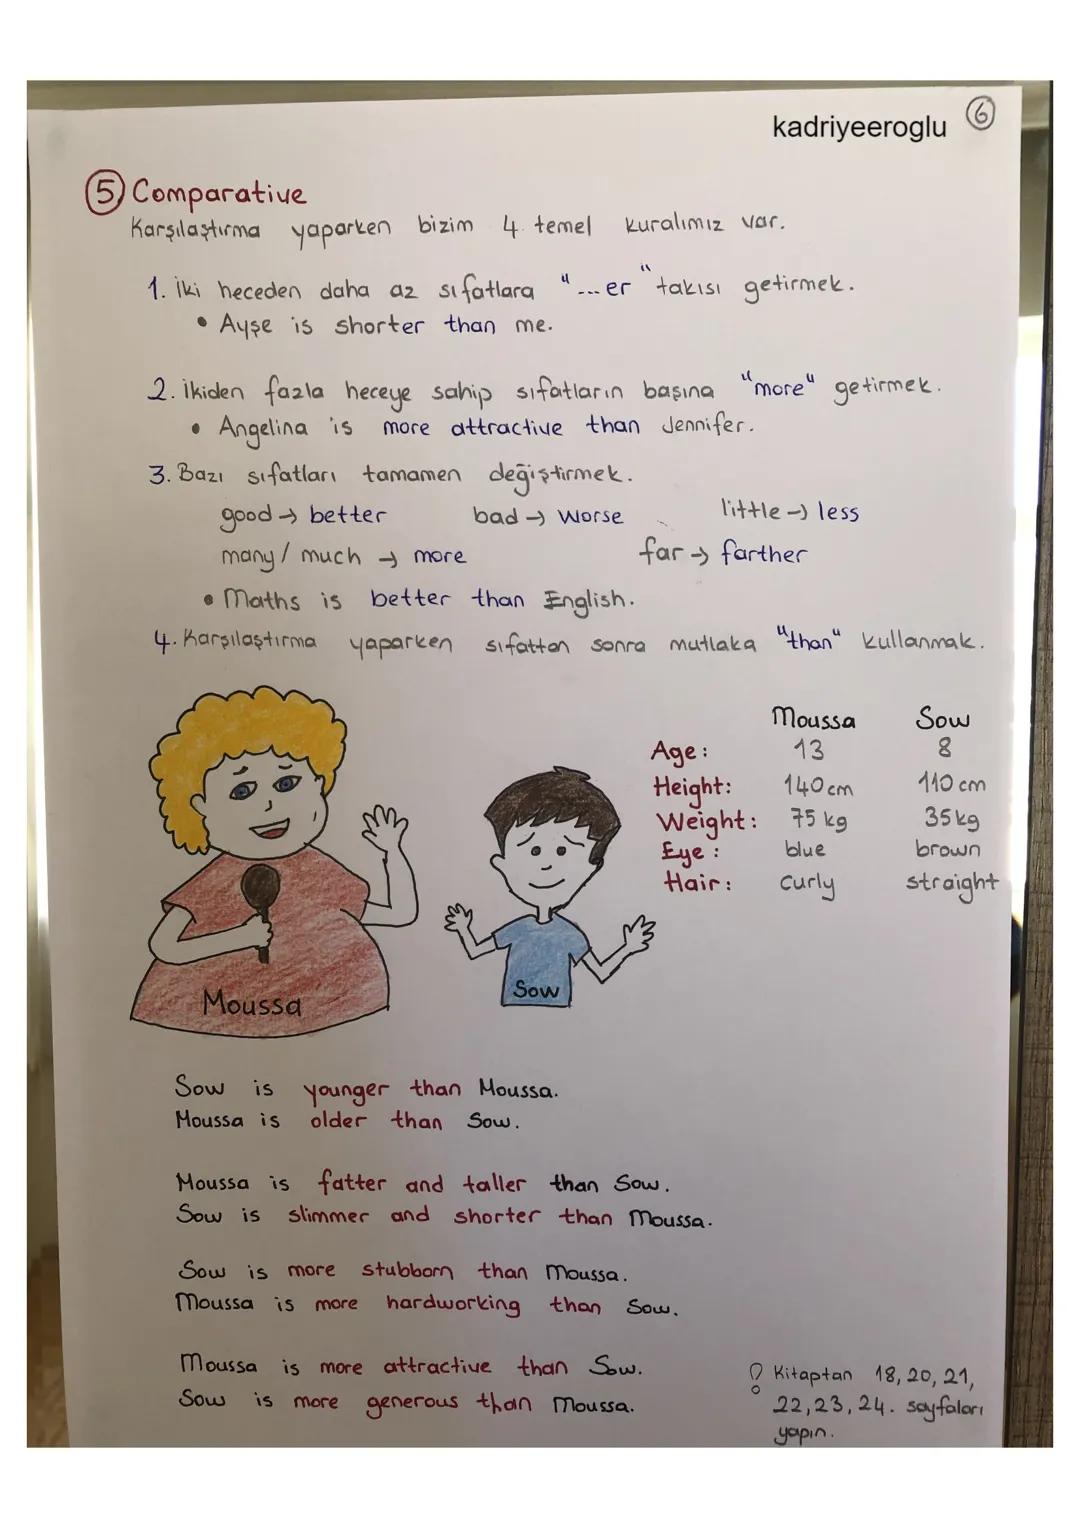 kadriyeeroglu 6
5 Comparative
Karşılaştırma yaparken bizim 4 temel kuralımız var.
1. İki heceden daha az sıfatlara "...er" takısı getirmek.
• Ayşe is shorter than me.
2. İkiden fazla heceye sahip sıfatların başına "more" getirmek.
• Angelina is more attractive than Jennifer.
3. Bazı sıfatları tamamen değiştirmek.
good → better bad → worse little → less
many / much → more far → farther
• Maths is better than English.
4. Karşılaştırma yaparken sıfattan sonra mutlaka "than" kullanmak.
Moussa Sow
Age: 13 8
Height: 140 cm 110 cm
Weight: 75 kg 35 kg
Eye: blue brown
Hair: curly straight
Moussa
Sow
Sow is younger than Moussa.
Moussa is older than Sow.
Moussa is fatter and taller than Sow.
Sow is slimmer and shorter than Moussa.
Sow is more stubborn than Moussa.
Moussa is more hardworking than Sow.
Moussa is more attractive than Sow.
Sow is more generous than Moussa.
Kitaptan 18, 20, 21,
22, 23, 24. sayfaları
yapın.